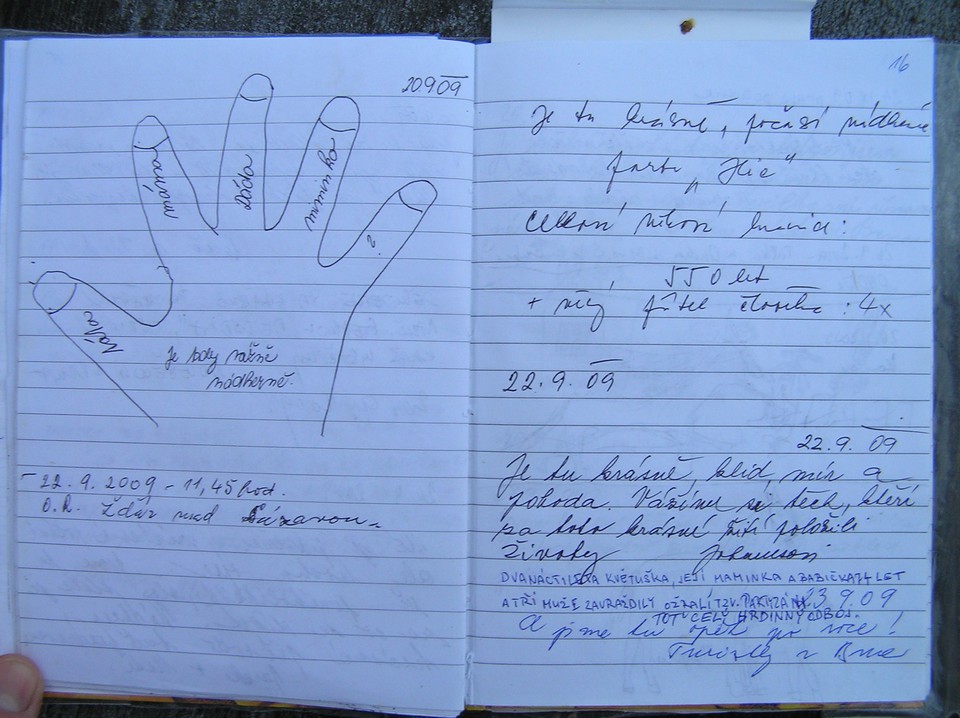 20909
táta
Dáda
maminka
?
Je tady vážně
nádherně.
- 22.9.2009 - 11,45 hod.
O.R. Žďár nad Sázavou
16
Je tu krásně, počasí nádherné
parta „
Celkový věkový :
550 let
+ přítel člověka : 4x
22.9.09
22.9.09
Je tu krásně, klid, mír a
pohoda. Vážíme si těch, kteří
za toto krásné žití položili
životy
DVANÁCTILETÁ KVĚTUŠKA, JEJÍ MAMINKA A BABIČKA 74 LET
A TŘI MUŽE ZAVRAŽDILY OŽRALÍ TZV. PARTYZÁNI
23.9.09
TOŤ CELÝ HRDINNÝ ODBOJ.
A jsme tu opět po roce!
Turisté z Brna